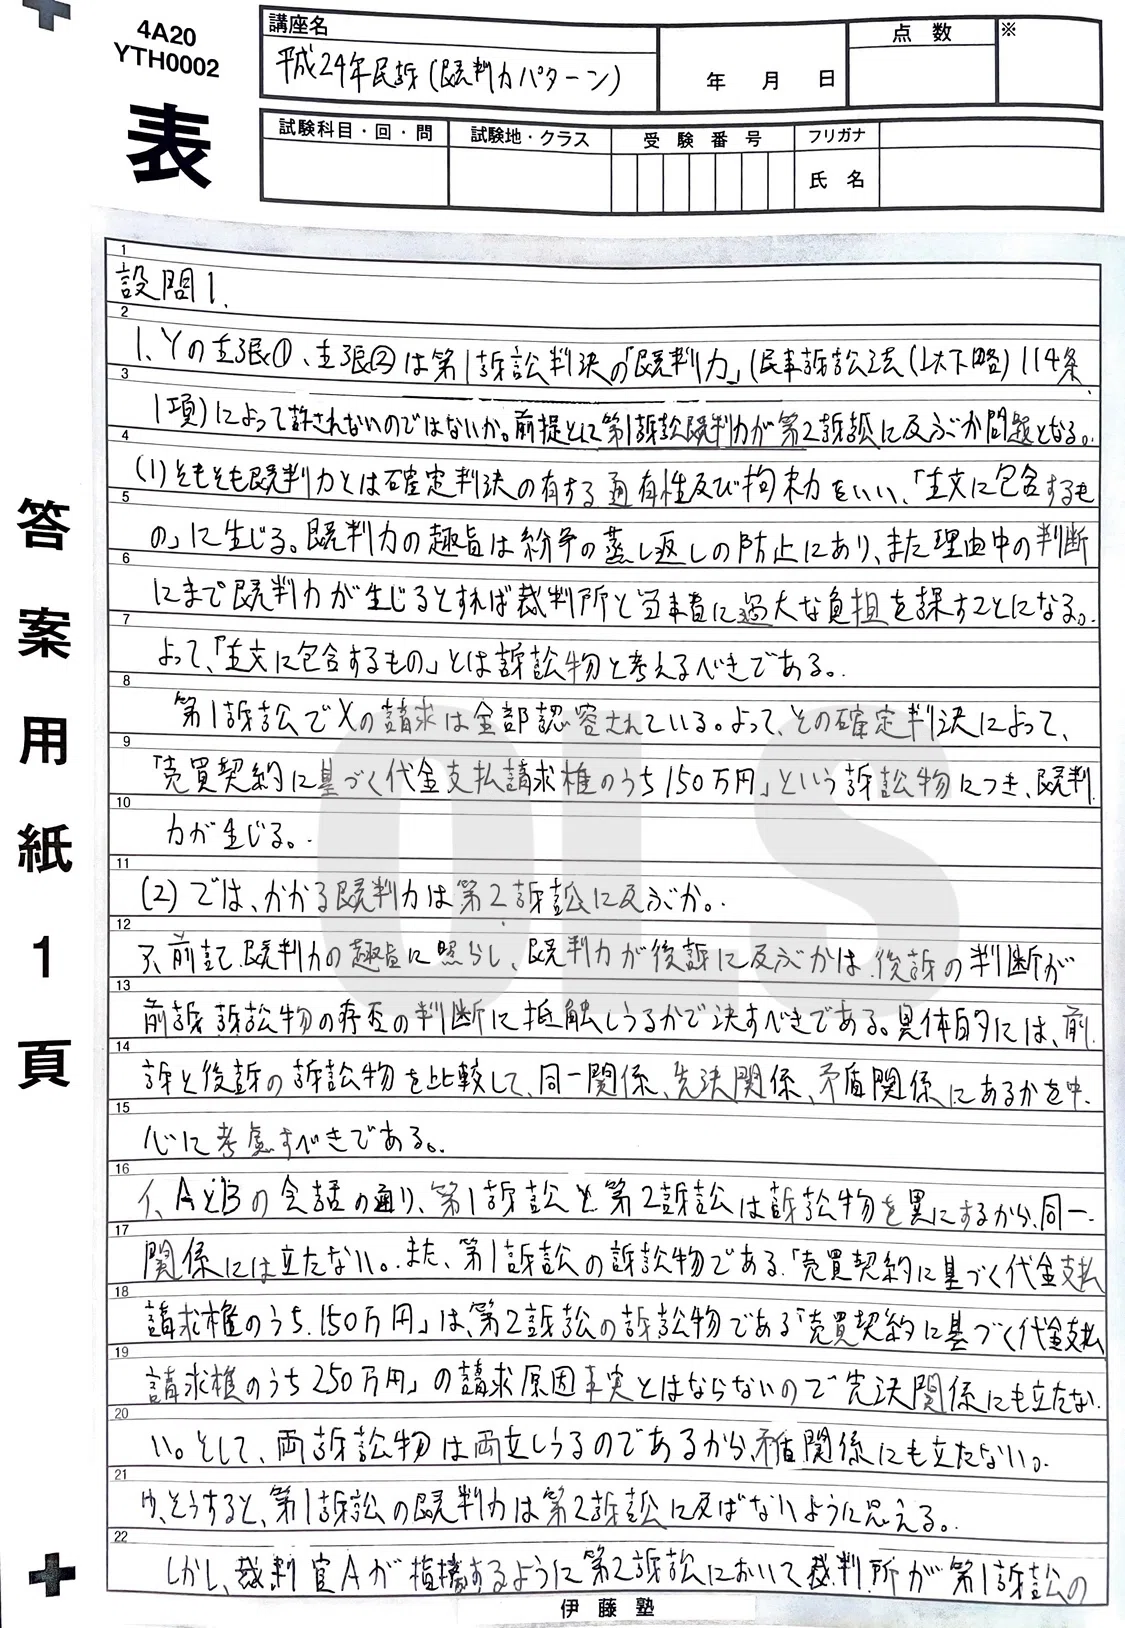 4A20
YTH0002
表
講座名
平成24年民訴(既判力パターン)
年 月 日
点 数
※
試験科目・回・問
試験地・クラス
受 験 番 号
フリガナ
氏 名
答案用紙1頁
1
設問1.
2
1、Yの主張①、主張②は第1訴訟判決の「既判力」(民事訴訟法(以下略)114条
3
1項)によって許されないのではないか。前提として第1訴訟既判力が第2訴訟に及ぶか問題となる。
4
(1)そもそも既判力とは確定判決の有する通有性及び拘束力をいい、「主文に包含するも
5
の」に生じる。既判力の趣旨は紛争の蒸し返しの防止にあり、また理由中の判断
6
にまで既判力が生じるとすれば裁判所と当事者に過大な負担を課すことになる。
7
よって、「主文に包含するもの」とは訴訟物と考えるべきである。
8
第1訴訟でXの請求は全部認容されている。よって、その確定判決によって、
9
「売買契約に基づく代金支払請求権のうち150万円」という訴訟物につき、既判
10
力が生じる。
11
(2)では、かかる既判力は第2訴訟に及ぶか。
12
ア、前記既判力の趣旨に照らし、既判力が後訴に及ぶかは、後訴の判断が
13
前訴訴訟物の存否の判断に抵触しうるかで決すべきである。具体的には、前
14
訴と後訴の訴訟物を比較して、同一関係、先決関係、矛盾関係にあるかを中
15
心に考慮すべきである。
16
イ、AとBの会話の通り、第1訴訟と第2訴訟は訴訟物を異にするから、同一
17
関係には立たない。また、第1訴訟の訴訟物である「売買契約に基づく代金支払
18
請求権のうち150万円」は、第2訴訟の訴訟物である「売買契約に基づく代金支払
19
請求権のうち250万円」の請求原因事実とはならないので先決関係にも立たな
20
い。そして、両訴訟物は両立しうるのであるから、矛盾関係にも立たない。
21
ウ、そうすると、第1訴訟の既判力は第2訴訟に及ばないように思える。
22
しかし、裁判官Aが指摘するように第2訴訟において裁判所が第1訴訟の
伊藤塾
OLS